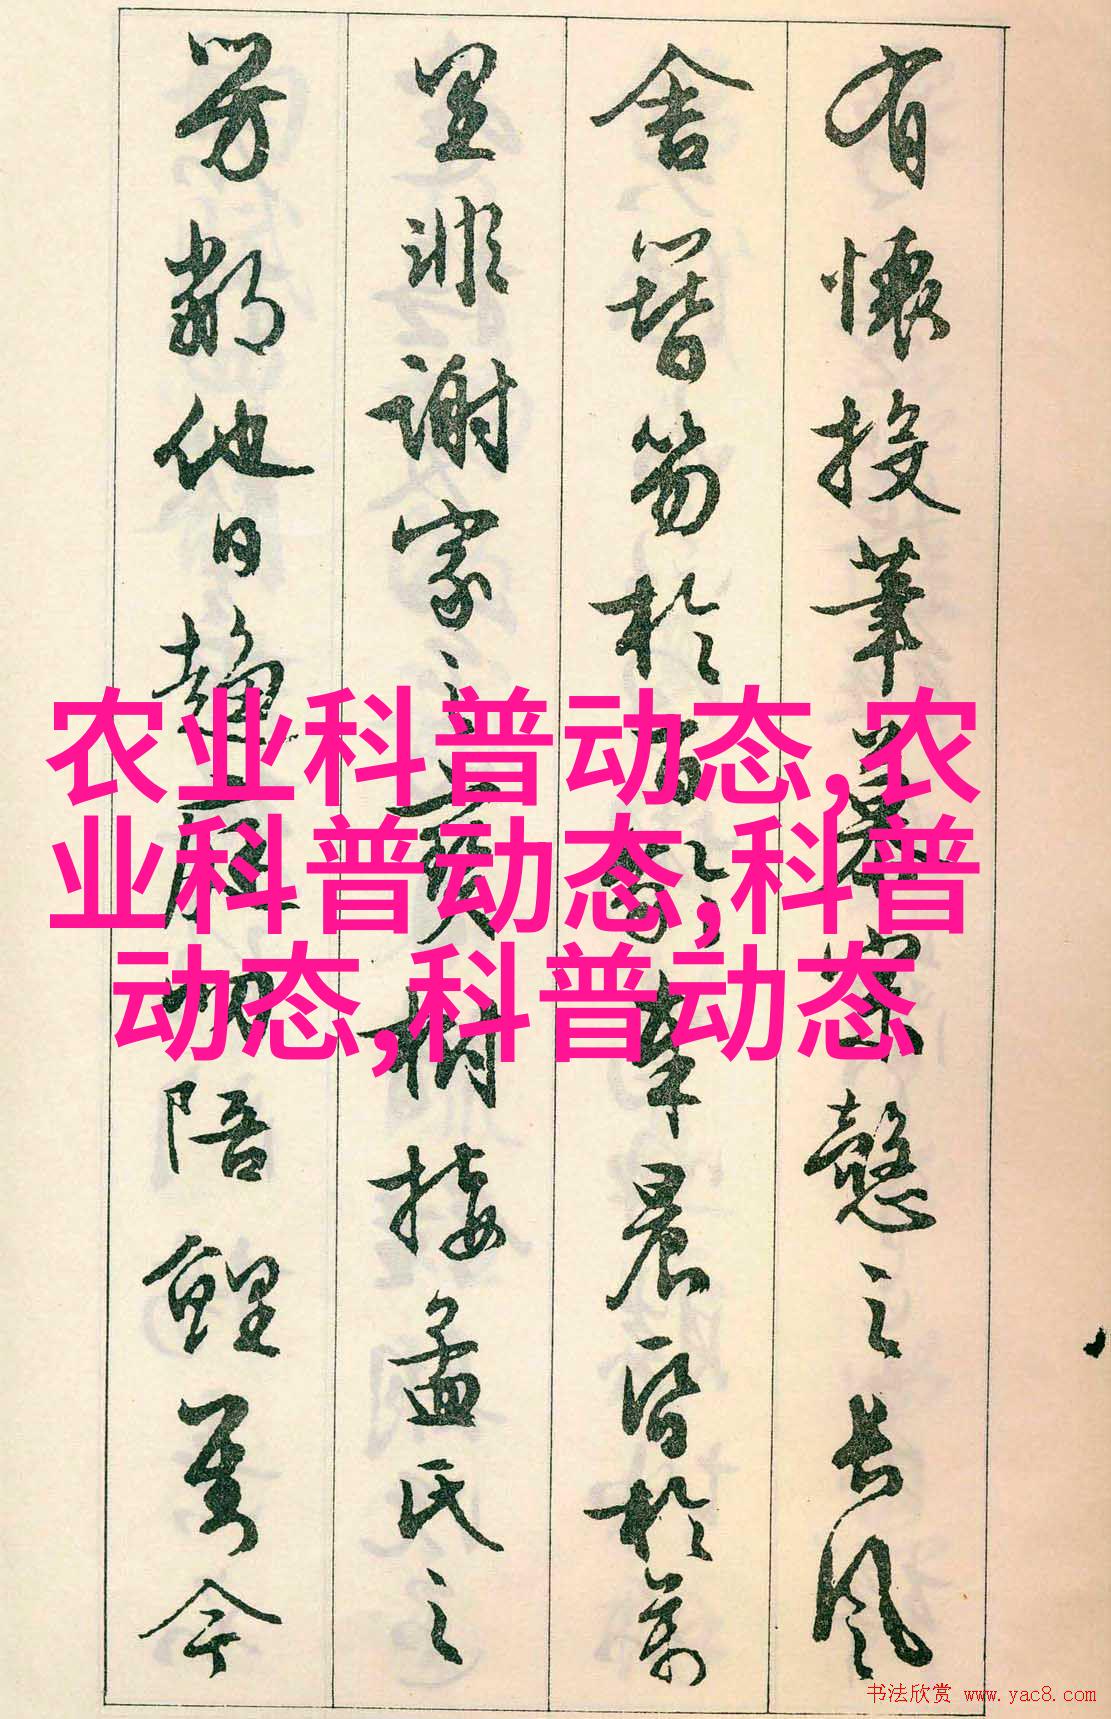 有懷投筆慕宗慤之長風
舍簪笏於百齡奉晨昏於萬
里非謝家之寶樹接孟氏之
芳鄰他日趨庭叨陪鯉對今
农业科普动态,农
业科普动态,科普
动态,科普动态
书法欣赏 www.yac8.com